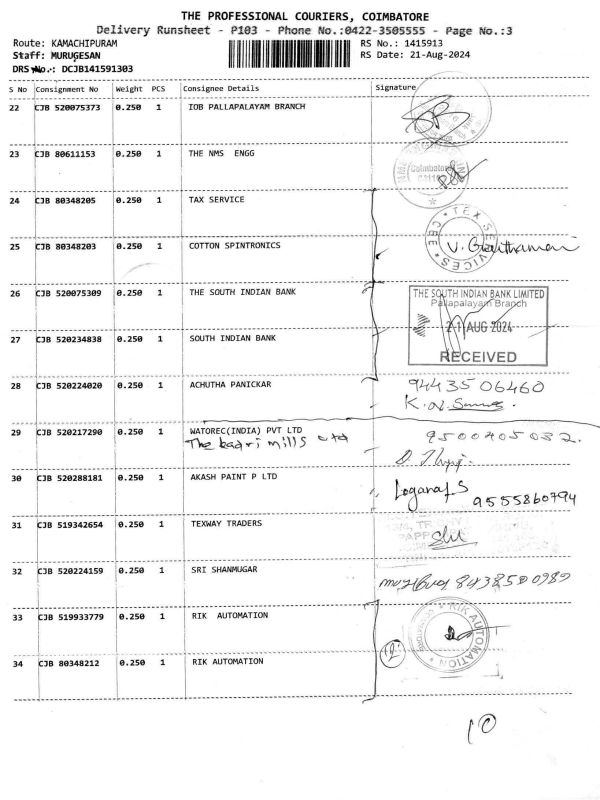 THE PROFESSIONAL COURIERS, COIMBATORE
Delivery Runsheet - P103 - Phone No.:0422-3505555 - Page No.:3
Route: KAMACHIPURAM RS No.: 1415913
Staff: MURUGESAN RS Date: 21-Aug-2024
DRS No.: DCJB141591303
S No Consignment No Weight PCS Consignee Details Signature
22 CJB 520075373 0.250 1 IOB PALLAPALAYAM BRANCH
23 CJB 80611153 0.250 1 THE NMS ENGG
Coimbatore
24 CJB 80348205 0.250 1 TAX SERVICE
TEX SERVICES CEE
25 CJB 80348203 0.250 1 COTTON SPINTRONICS
26 CJB 520075309 0.250 1 THE SOUTH INDIAN BANK
THE SOUTH INDIAN BANK LIMITED
Pallapalayam Branch
21 AUG 2024
RECEIVED
27 CJB 520234838 0.250 1 SOUTH INDIAN BANK
28 CJB 520224020 0.250 1 ACHUTHA PANICKAR
9443506460
29 CJB 520217290 0.250 1 WATOREC(INDIA) PVT LTD
The badri mills Ltd
9500405032.
30 CJB 520288181 0.250 1 AKASH PAINT P LTD
Loganaf S
9555860794
31 CJB 519342654 0.250 1 TEXWAY TRADERS
32 CJB 520224159 0.250 1 SRI SHANMUGAR
33 CJB 519933779 0.250 1 RIK AUTOMATION
RIK AUTOMATION
34 CJB 80348212 0.250 1 RIK AUTOMATION
10